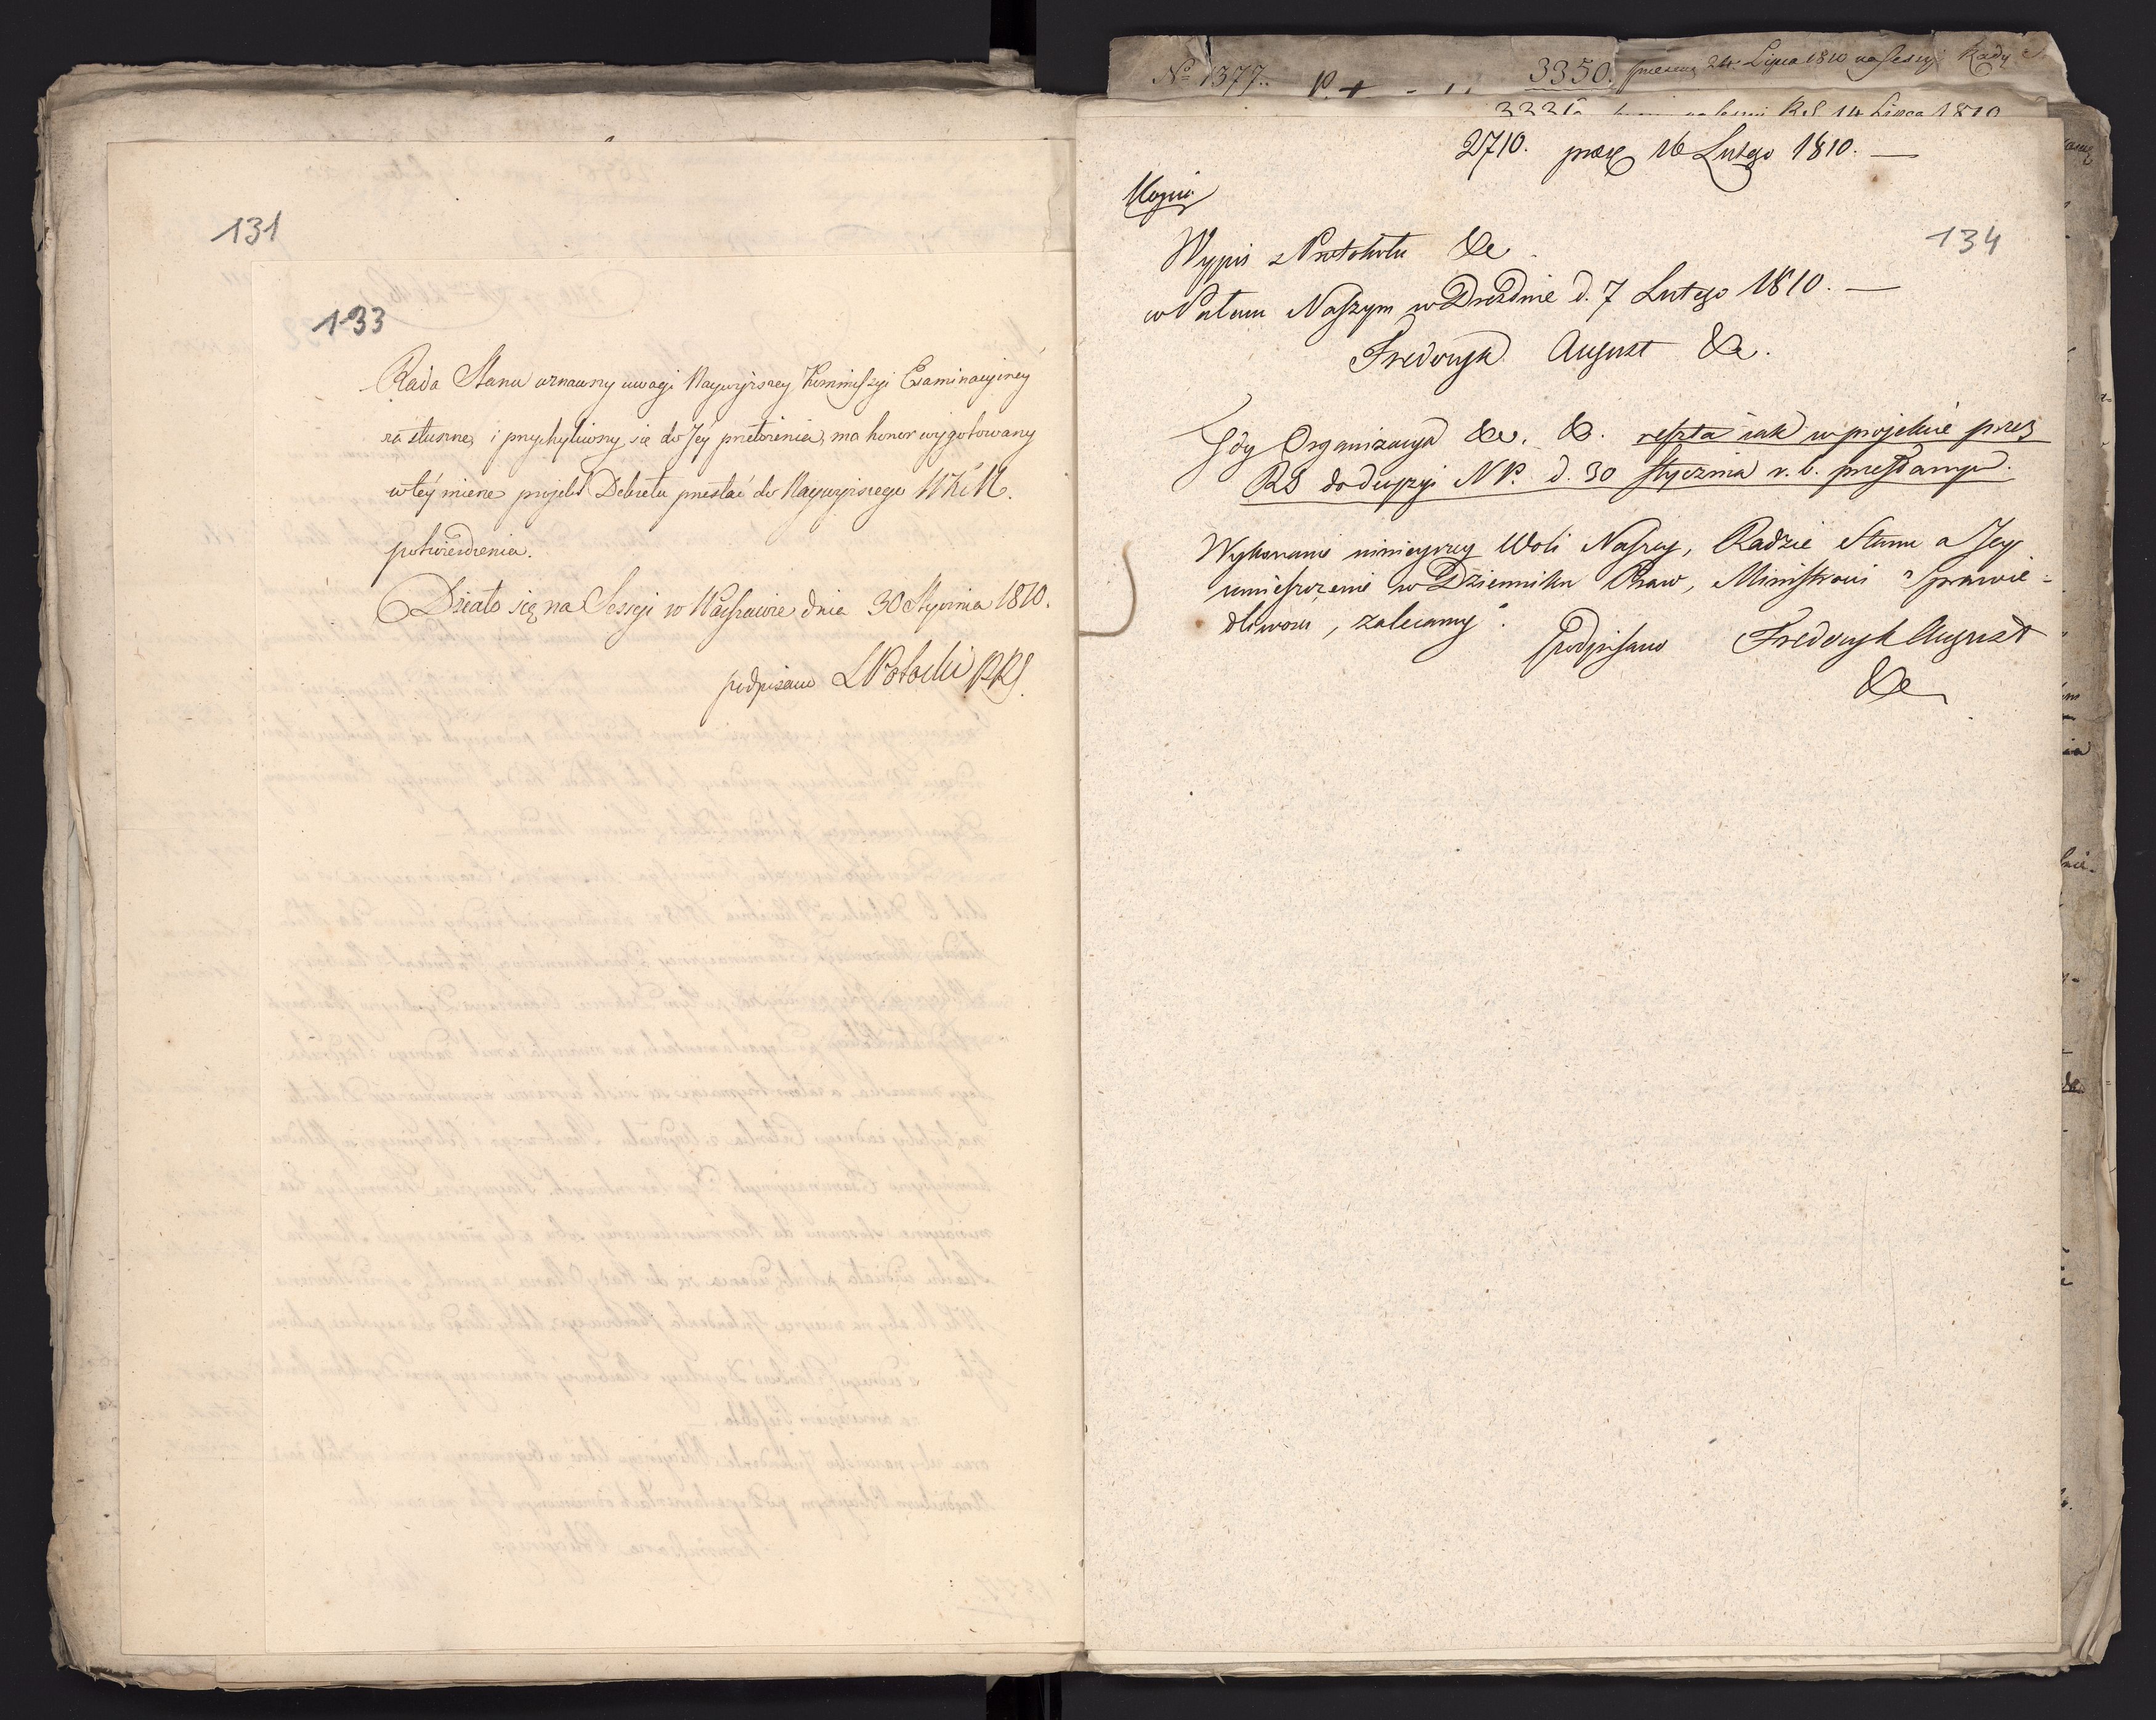 131
133
Rada Stanu uznawszy uwagi Naywyższey Kommissyi Examinacyiney
za słuszne, i przychyliwszy się do Jey przełożenia, ma honor wygotowany
w tey mierze projekt Dekretu przesłać do Naywyższego WKM.
potwierdzenia.
Działo się na Sessyi w Warszawie dnia 30 Stycznia 1810.
podpisano LPotocki PRS.
No 1377.
3350. 24 Lipca 1810 na Sessyi Rady
RS 14 Lipca 1810
2710. praes 16 Lutego 1810. —
Kopia
134
Wypis z Protokołu &c
w Pałacu Naszym w Dreźnie d. 7 Lutego 1810. —
Fryderyk August &c.
Gdy Organizacya &c. &c. reszta iak w projekcie przez
RS do decyzyi NP. d. 30 Stycznia r. b. przesłanym.
Wykonanie ninieyszey Woli Naszey, Radzie Stanu a Jey
umieszczenie w Dzienniku Praw, Ministrowi Sprawie-
dliwości, zalecamy.
podpisano Fryderyk August
&c